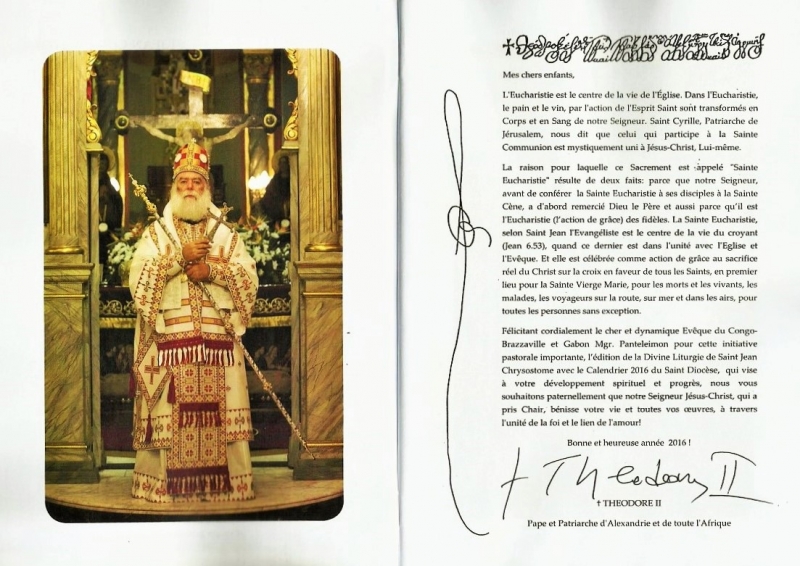 Mes chers enfants,
L'Eucharistie est le centre de la vie de l'Église. Dans l'Eucharistie,
le pain et le vin, par l'action de l'Esprit Saint sont transformés en
Corps et en Sang de notre Seigneur. Saint Cyrille, Patriarche de
Jérusalem, nous dit que celui qui participe à la Sainte
Communion est mystiquement uni à Jésus-Christ, Lui-même.
La raison pour laquelle ce Sacrement est appelé "Sainte
Eucharistie" résulte de deux faits: parce que notre Seigneur,
avant de conférer la Sainte Eucharistie à ses disciples à la Sainte
Cène, a d'abord remercié Dieu le Père et aussi parce qu'il est
l'Eucharistie (l'action de grâce) des fidèles. La Sainte Eucharistie,
selon Saint Jean l'Evangéliste est le centre de la vie du croyant
(Jean 6.53), quand ce dernier est dans l'unité avec l'Eglise et
l'Evêque. Et elle est célébrée comme action de grâce au sacrifice
réel du Christ sur la croix en faveur de tous les Saints, en premier
lieu pour la Sainte Vierge Marie, pour les morts et les vivants, les
malades, les voyageurs sur la route, sur mer et dans les airs, pour
toutes les personnes sans exception.
Félicitant cordialement le cher et dynamique Evêque du Congo-
Brazzaville et Gabon Mgr. Panteleimon pour cette initiative
pastorale importante, l'édition de la Divine Liturgie de Saint Jean
Chrysostome avec le Calendrier 2016 du Saint Diocèse, qui vise
à votre développement spirituel et progrès, nous vous
souhaitons paternellement que notre Seigneur Jésus-Christ, qui a
pris Chair, bénisse votre vie et toutes vos œuvres, à travers
l'unité de la foi et le lien de l'amour!
Bonne et heureuse année 2016 !
† Theodoros II
† THEODORE II
Pape et Patriarche d'Alexandrie et de toute l'Afrique